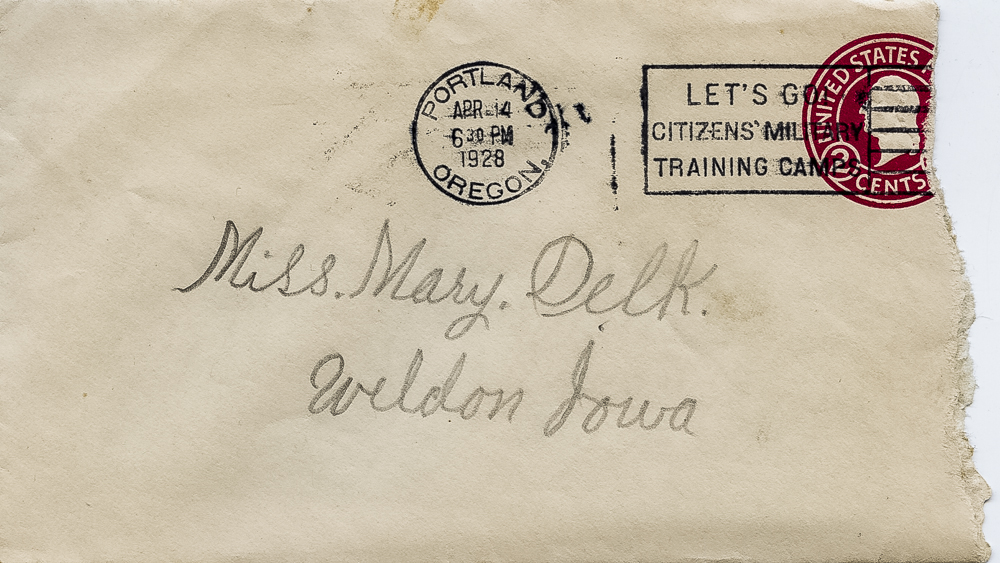 PORTLAND,
APR 14
6 30 PM
1928
OREGON.
LET'S GO!
CITIZENS' MILITARY
TRAINING CAMPS
UNITED STATES
2 CENTS
Miss. Mary. Delk.
Weldon Iowa